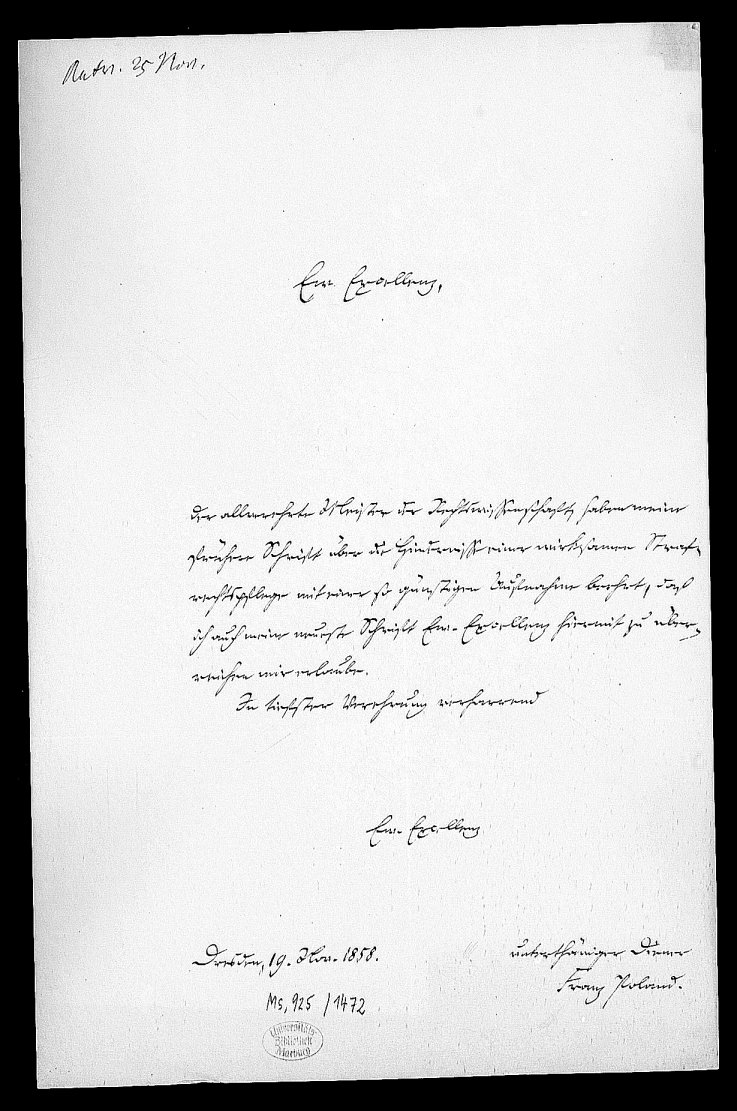 Antw. 25 Nov.
Ew. Excellenz,
der allverehrte Meister der Rechtswissenschaft, haben meine
frühere Schrift über die Hindernisse einer wirksamen Straf-
rechtspflege mit einer so günstigen Aufnahme beehrt, daß
ich auch meine neueste Schrift Ew. Excellenz hiermit zu über-
reichen mir erlaube.
In tiefster Verehrung verharrend
Ew. Excellenz
Dresden, 19. Nov. 1858.
unterthäniger Diener
Franz Poland.
Ms. 925 / 1472
Universitäts-
Bibliothek
Marburg